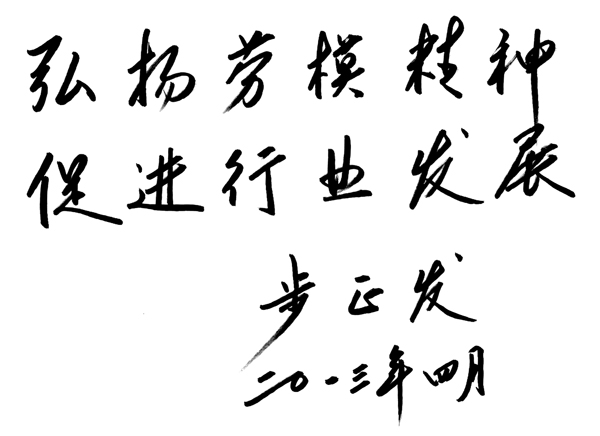 弘扬劳模精神
促进行业发展
步正发
二〇一三年四月